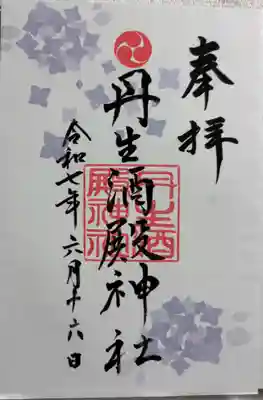 奉拝
丹生酒殿神社
令和七年六月十六日
丹生酒殿神社